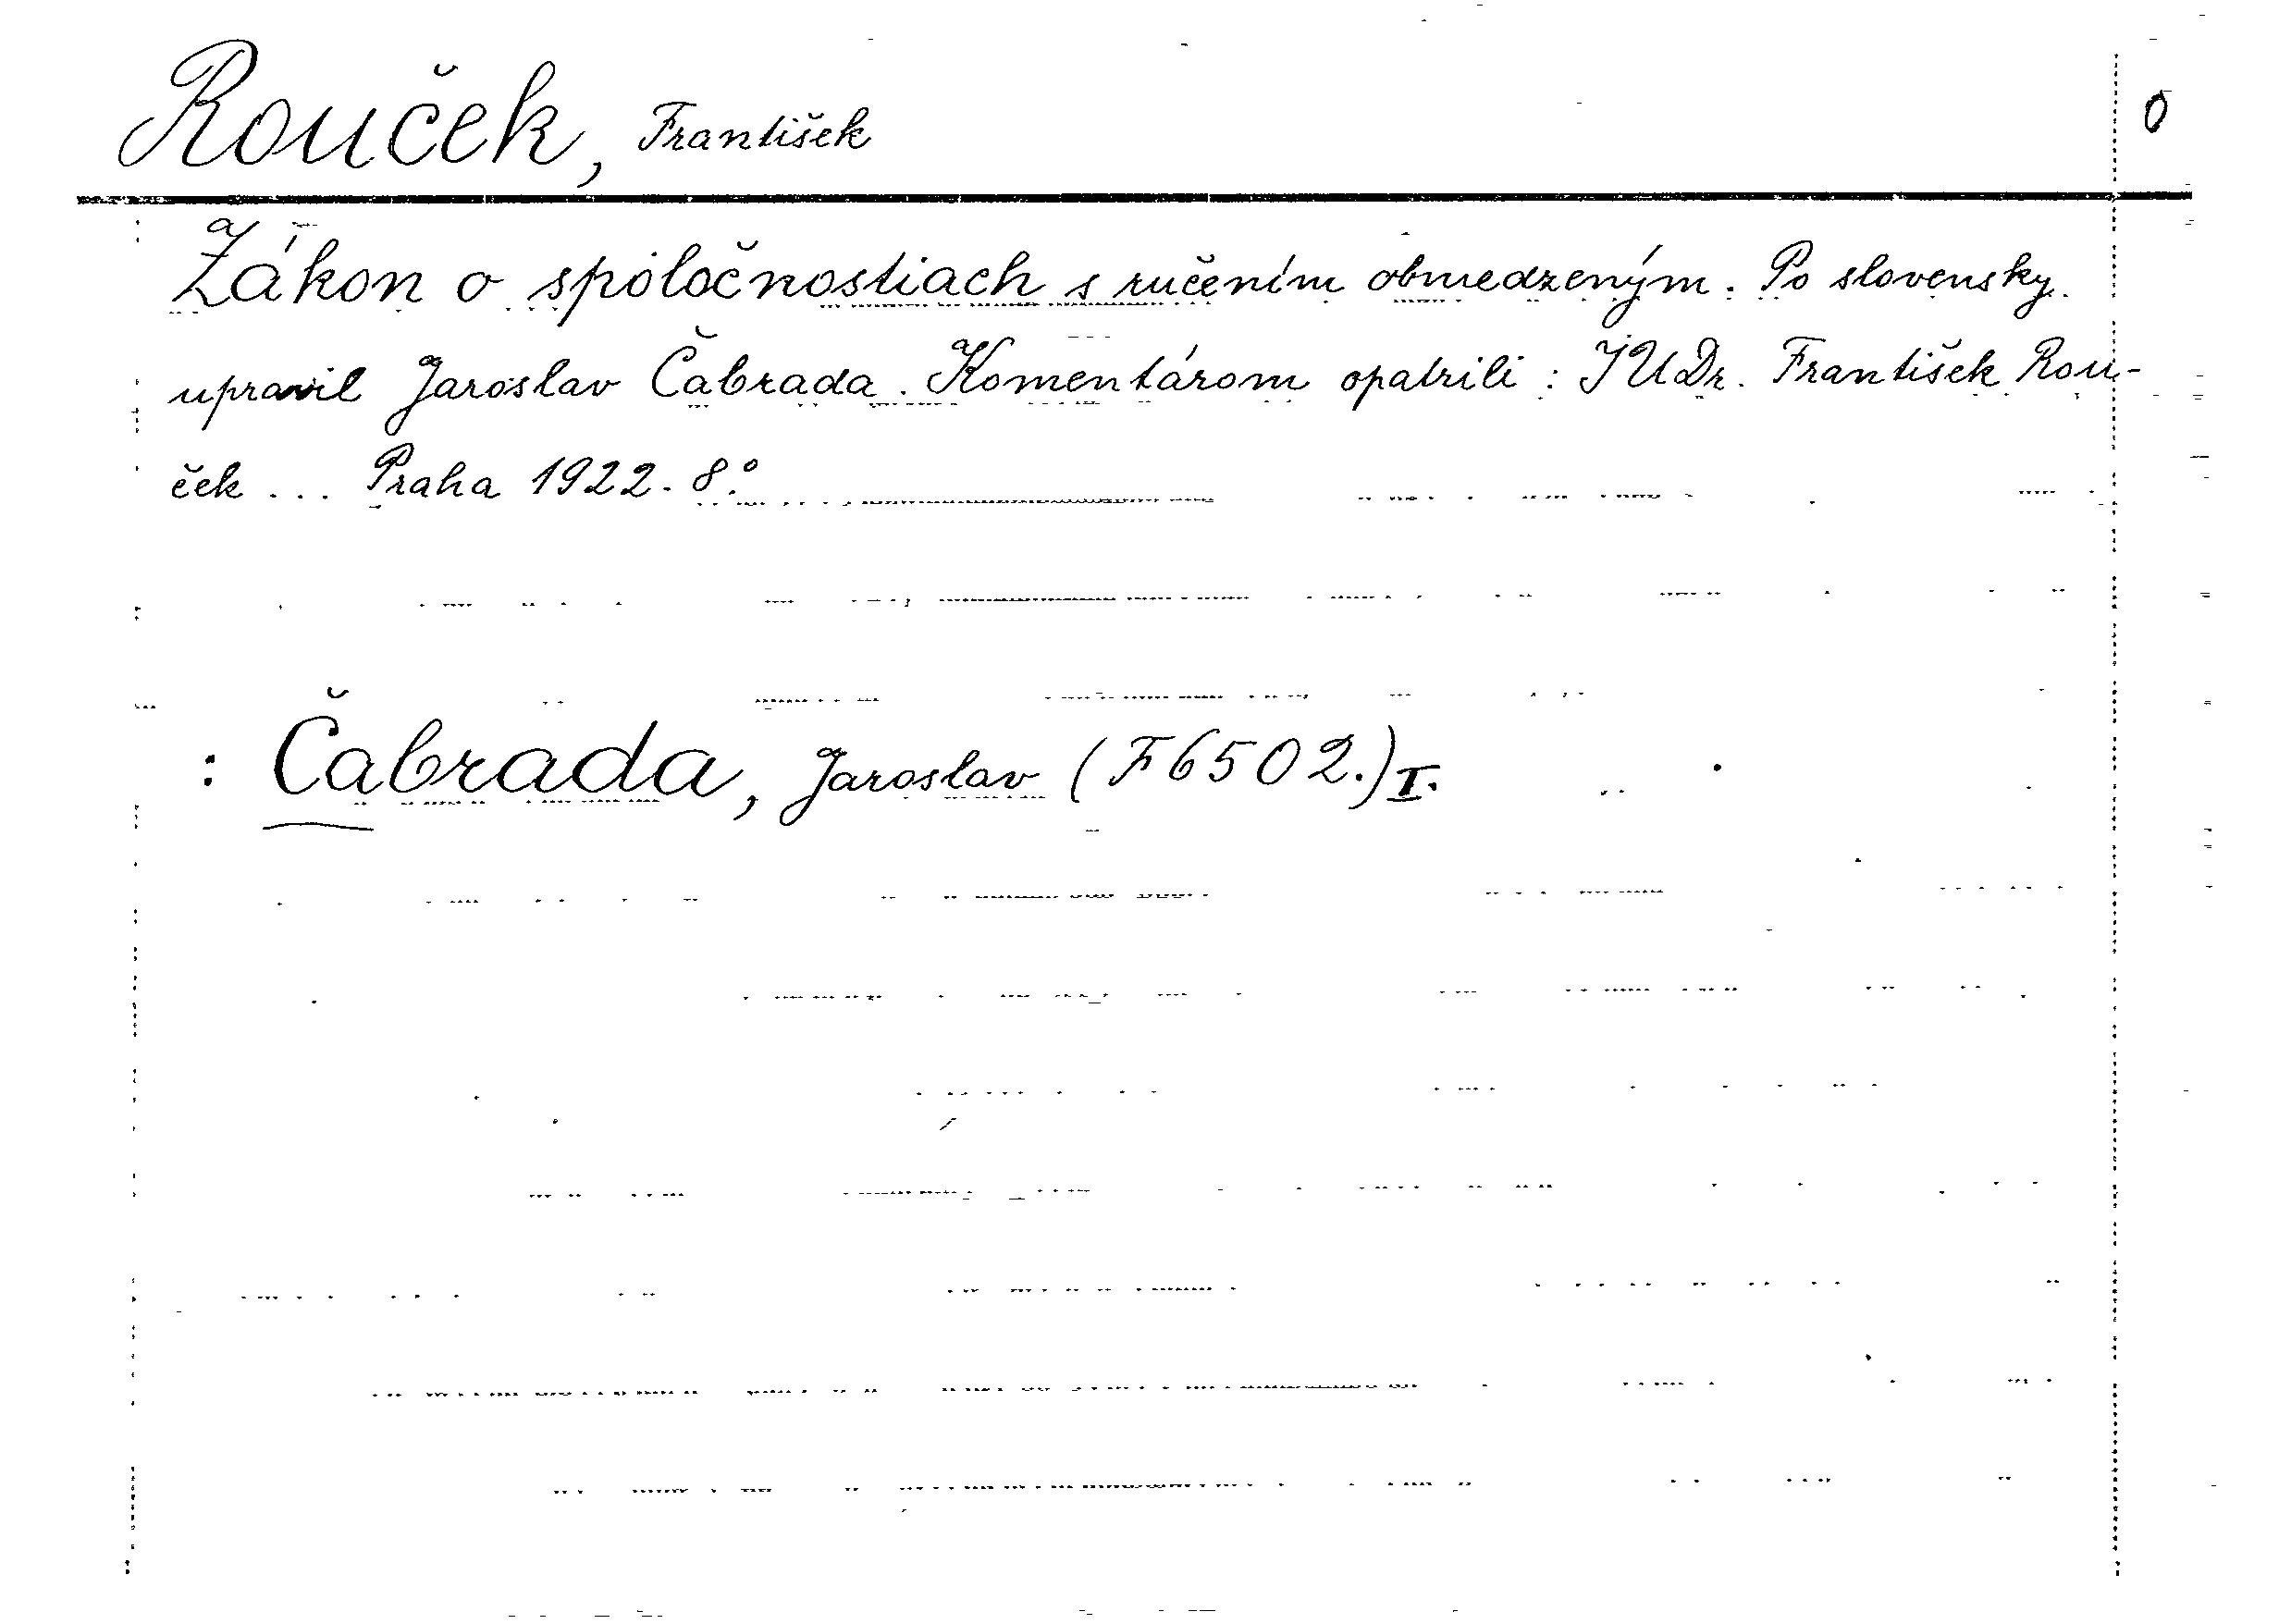 Rouček, František
0
Zákon o spoločnostiach s ručením obmedzeným. Po slovensky
upravil Jaroslav Čabrada. Komentárom opatrili: JUDr. František Rou-
ček ... Praha 1922. 8°.
: Čabrada, Jaroslav (F6502.) I.